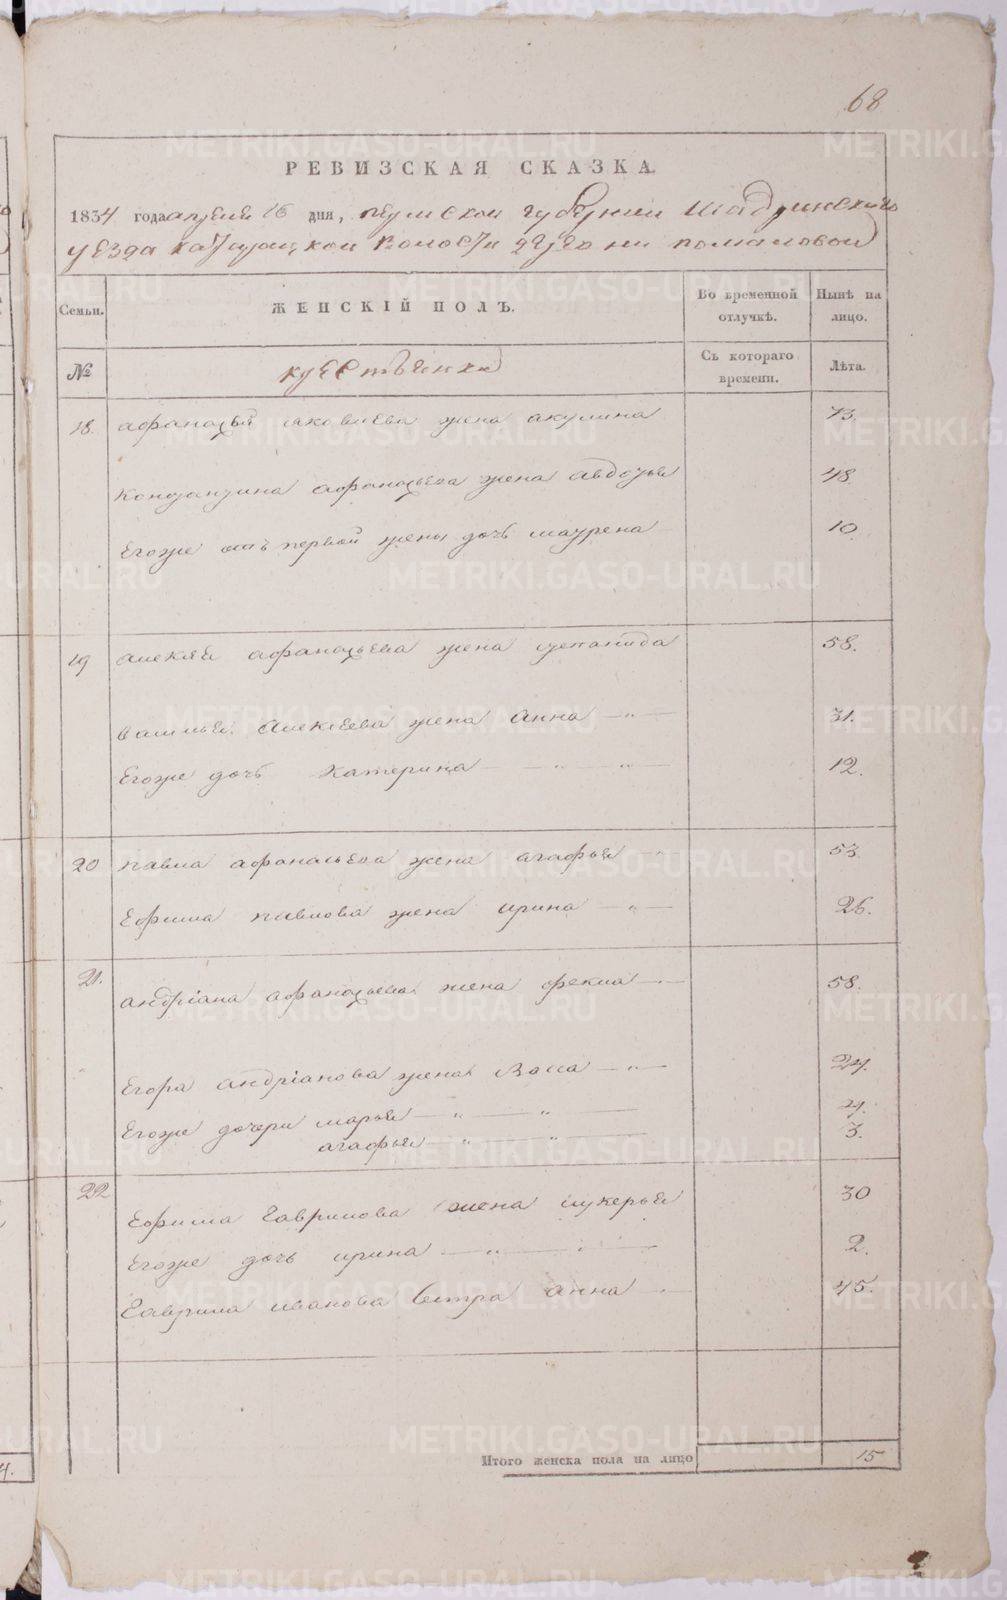 68
РЕВИЗСКАЯ СКАЗКА
1834 года апреля 16 дня, пермской губернии Шадринскаго
уезда катайской волости деревни
Семьи. ЖЕНСКІЙ ПОЛЪ. Во временной отлучкѣ. Нынѣ на лицо.
№ крестьянки Съ котораго времени. Лѣта.
18. афанасья яковлева жена акулина 73
Константина афанасьева жена авдотья 48
Егоже отъ первой жены дочь маурена 10
19 алексея афанасьева жена степанида 58.
василья алексеева жена анна — „ — 31.
Егоже дочь катерина — „ — „ — 12.
20 павла афанасьева жена агафья 53
Ефима павлова жена ирина — „ — 26.
21. андріана афанасьева жена фекла — 58.
Егора андріанова жена Васса — „ — 24.
Егоже дочери марья — „ — „ — 4.
агафья — „ — „ — 3.
22 Ефима Гаврилова жена лукерья 30
Егоже дочь ирина — „ — „ — 2.
Гаврила иванова сестра анна — 45.
Итого женска пола на лицо 15
METRIKI.GASO-URAL.RU